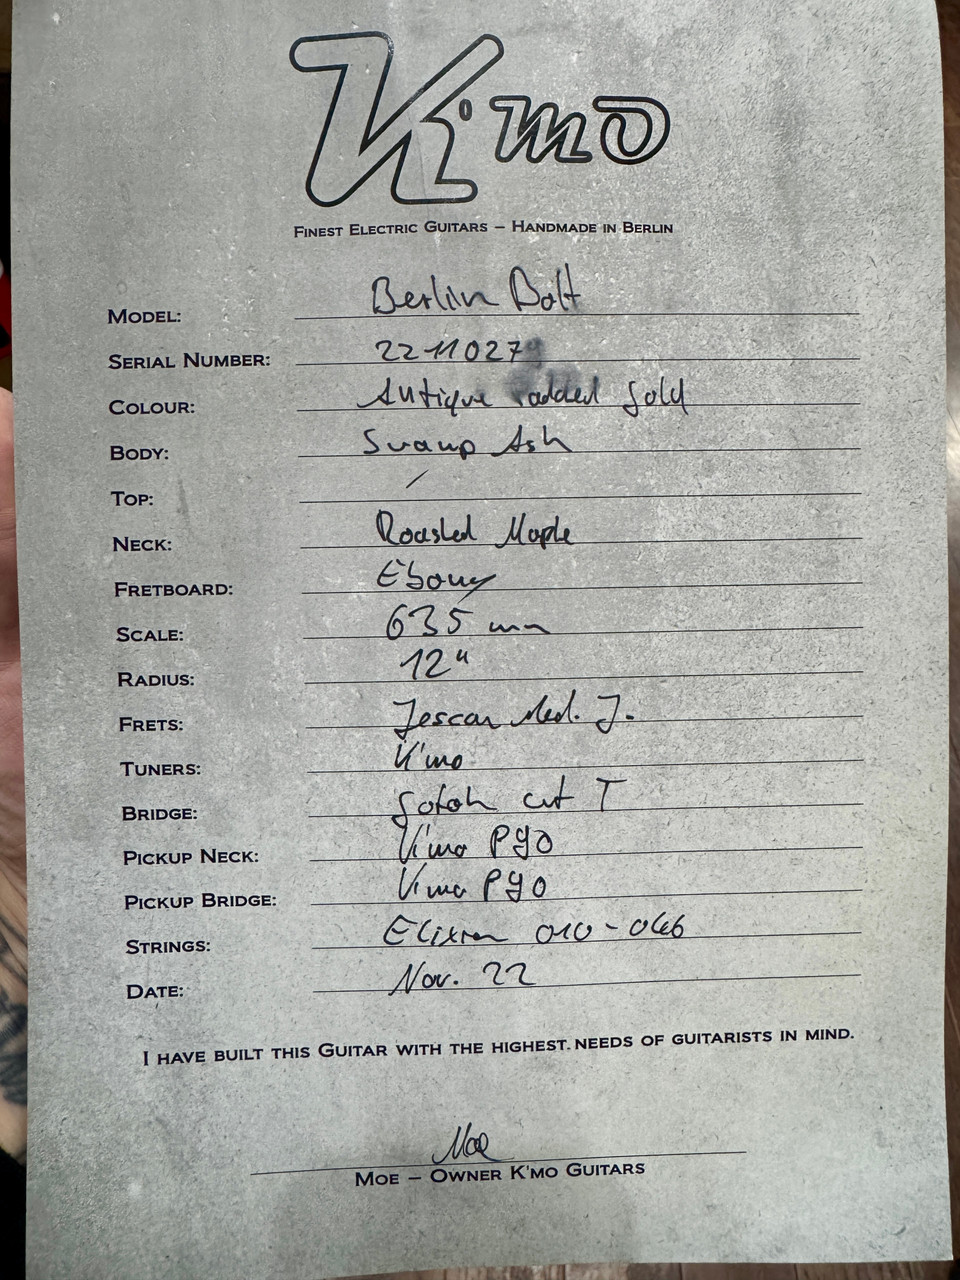 K'mo
FINEST ELECTRIC GUITARS – HANDMADE IN BERLIN
MODEL: Berlin Bolt
SERIAL NUMBER: 2211027
COLOUR: Antique Gold
BODY: Swamp Ash
TOP: /
NECK: Roasted Maple
FRETBOARD: Ebony
SCALE: 635 mm
RADIUS: 12"
FRETS: Jescar Med. J.
TUNERS: K'mo
BRIDGE: Gotoh cut T
PICKUP NECK: K'mo P90
PICKUP BRIDGE: K'mo P90
STRINGS: Elixir 010 - 046
DATE: Nov. 22
I HAVE BUILT THIS GUITAR WITH THE HIGHEST NEEDS OF GUITARISTS IN MIND.
Moe
MOE – OWNER K'MO GUITARS